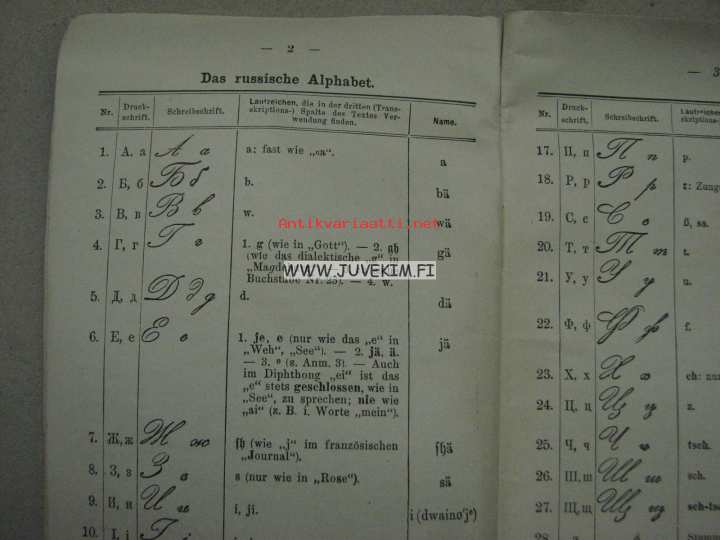 — 2 —
Das russische Alphabet.
Nr. Druck-schrift. Schreibschrift. Lautzeichen, die in der dritten (Trans-
skriptions-) Spalte des Textes Ver-
wendung finden. Name.
1. А, а А а a: fast wie „aa“. a
2. Б, б Б б b. bä
3. В, в В в w. wä
4. Г, г Г г 1. g (wie in „Gott“). — 2. gh gä
(wie das dialektische „g“ in
Buchstabe Nr. 23). — 4. w.
5. Д, д Д д д d. dä
6. Е, е Е е 1. je, e (nur wie das „e“ in jä
„Weh“, „See“). — 2. jä, ä.
— 3. e (s. Anm. 3). — Auch
im Diphthong „ei“ ist das
„e“ stets geschlossen, wie in
„See“, zu sprechen; nie wie
„ai“ (z. B. i. Worte „mein“).
7. Ж, ж Ж ж ſh (wie „j“ im französischen ſhä
„Journal“).
8. З, з З з s (nur wie in „Rose“). sä
9. И, и И и i, ji. i (dwaino'je)
10. І, і І і
Antikvariaatti.net
WWW.JUVEKIM.FI
— 3
Nr. Druck-schrift. Schreibschrift. Lautzeichen
skriptions-)
17. П, п П п p.
18. Р, р Р р r: Zung
19. С, с С с ß, sa.
20. Т, т Т т t.
21. У, у У у u.
22. Ф, ф Ф ф f.
23. Х, х Х х ch:
24. Ц, ц Ц ц z.
25. Ч, ч Ч ч tsch.
26. Ш, ш Ш ш sch.
27. Щ, щ Щ щ sch-ts
28.